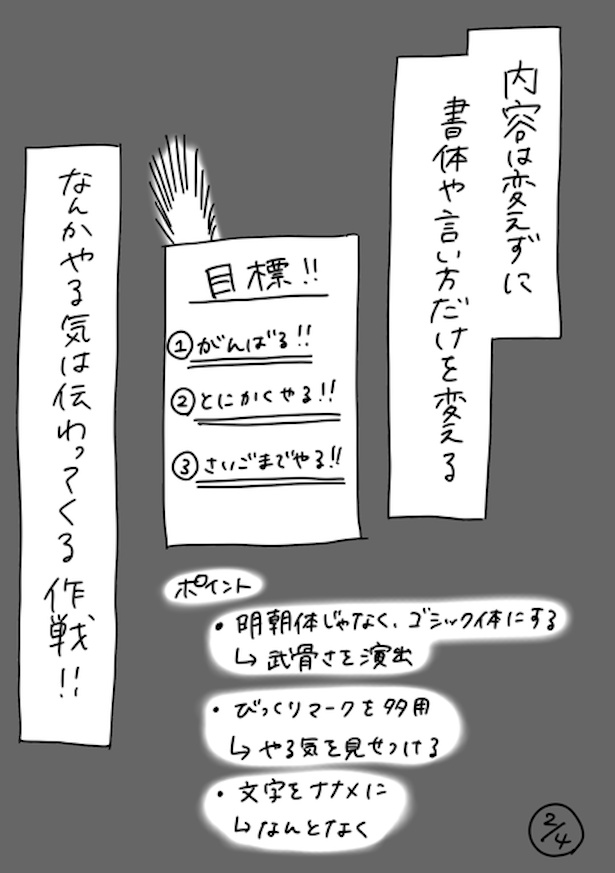 内容は変えずに
書体や言い方だけを変える
目標!!
①がんばる!!
②とにかくやる!!
③さいごまでやる!!
なんかやる気は伝わってくる作戦!!
ポイント
・明朝体じゃなく、ゴシック体にする
↳武骨さを演出
・びっくりマークを多用
↳やる気を見せつける
・文字をナナメに
↳なんとなく
2/4